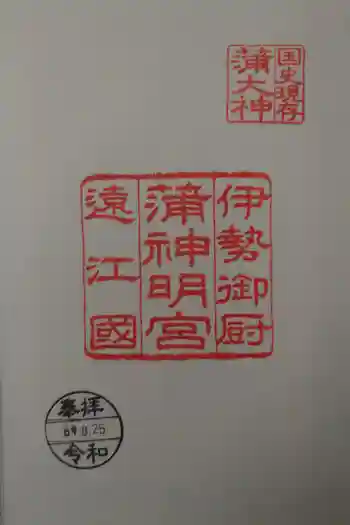 国史現存
蒲大神
伊勢御厨
蒲神明宮
遠江國
奉拝
令和